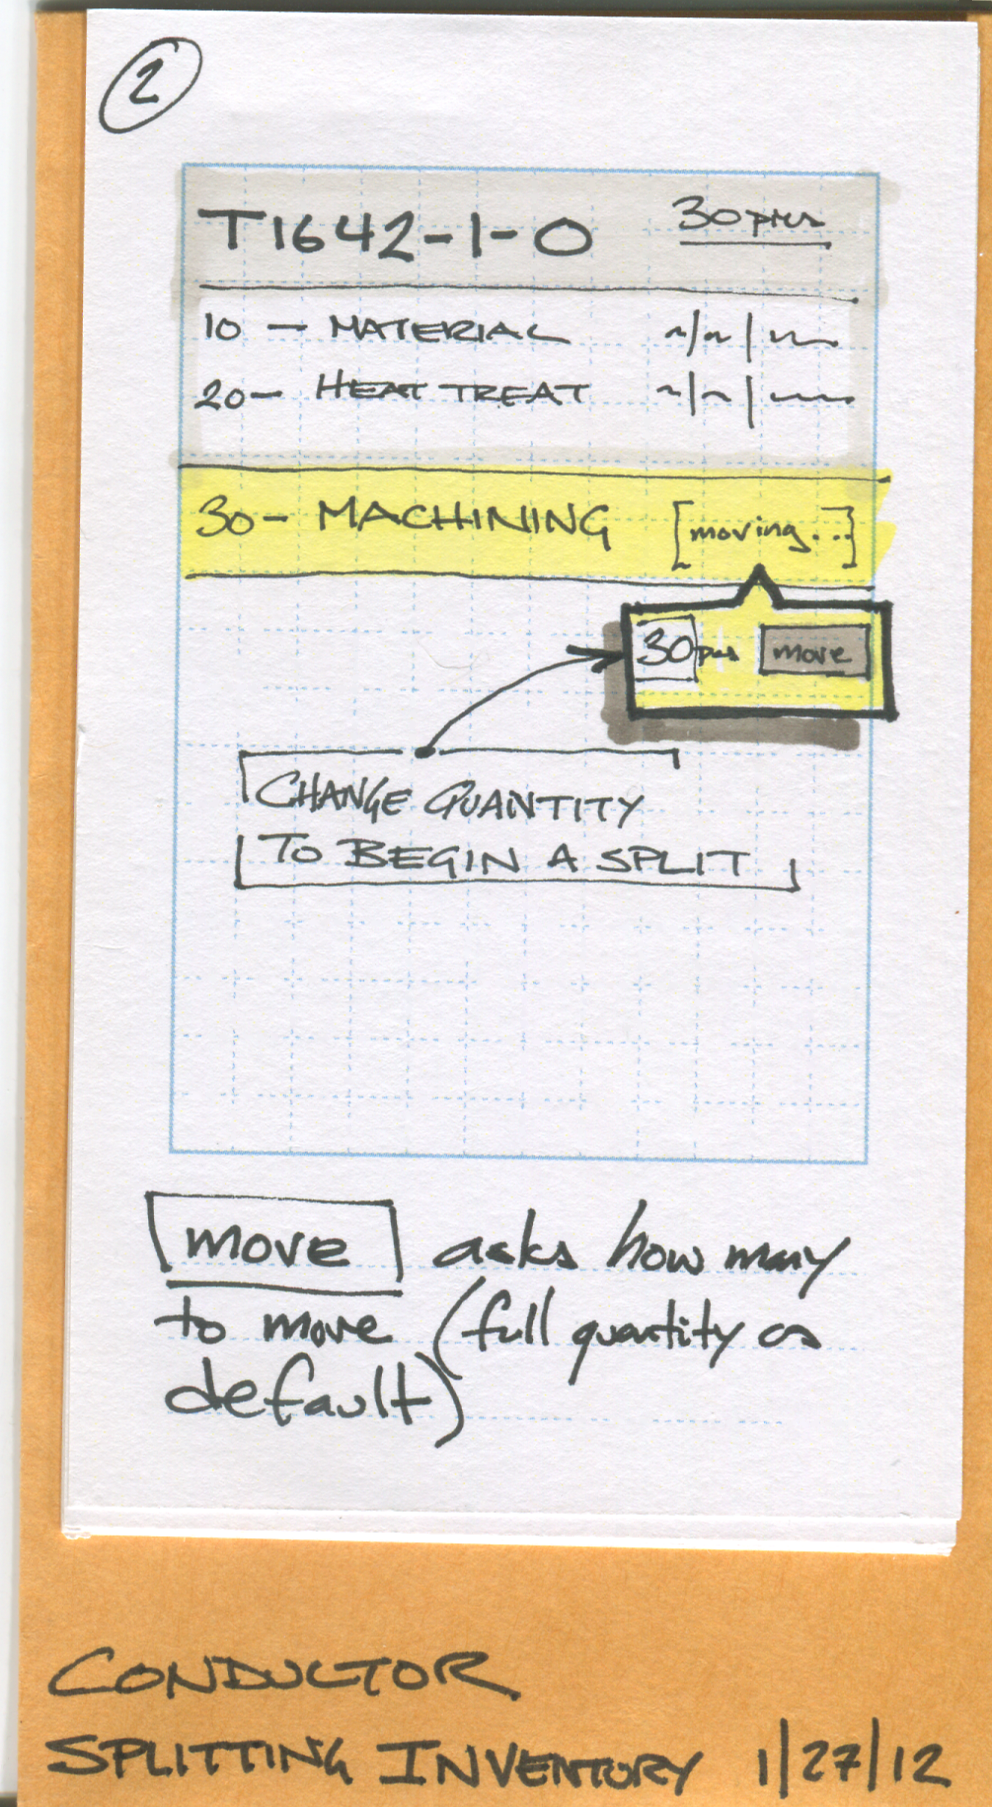 2
T1642-1-0 30 pcs
10 - MATERIAL
20- HEAT TREAT
30- MACHINING [moving...]
30 pcs move
CHANGE QUANTITY
TO BEGIN A SPLIT
move asks how many
to move (full quantity as
default)
CONDUCTOR
SPLITTING INVENTORY 1/27/12